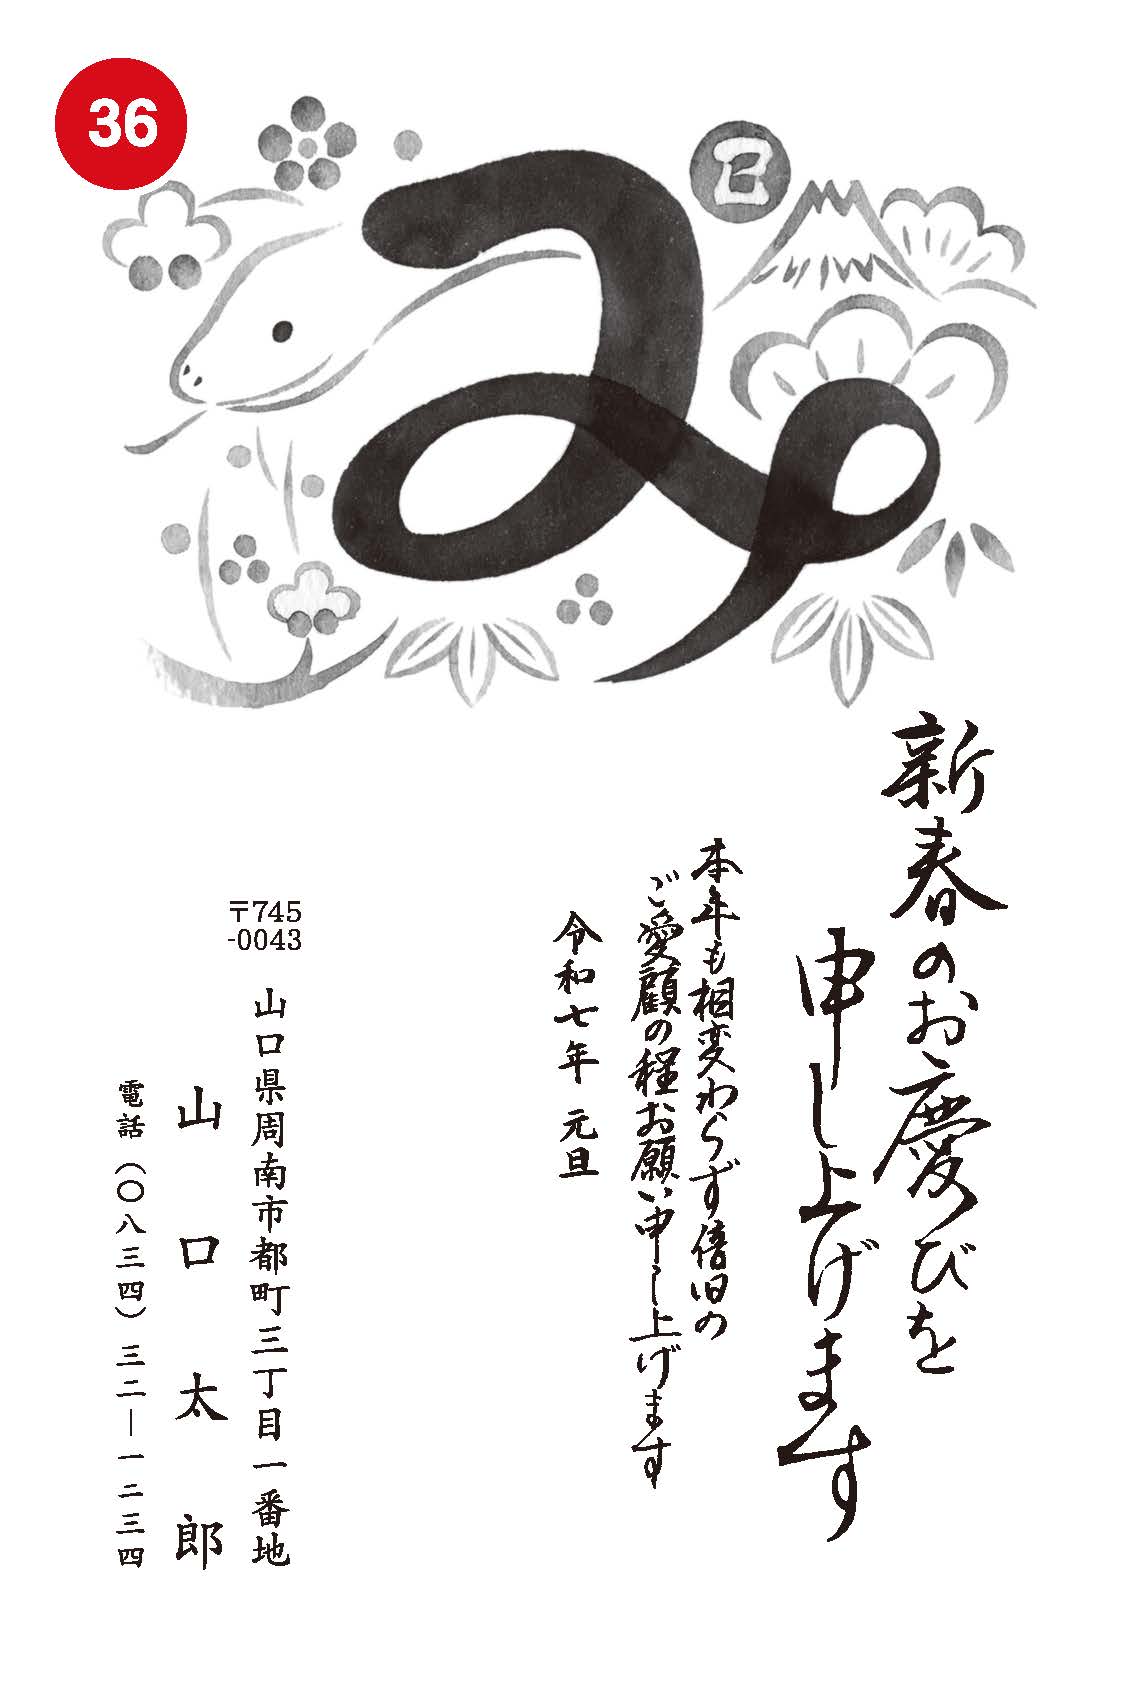 36
み
巳
新春のお慶びを
申し上げます
本年も相変わらず倍旧の
ご愛顧の程お願い申し上げます
令和七年 元旦
〒745
-0043
山口県周南市都町三丁目一番地
山口太郎
電話(〇八三四)三二―一二三四